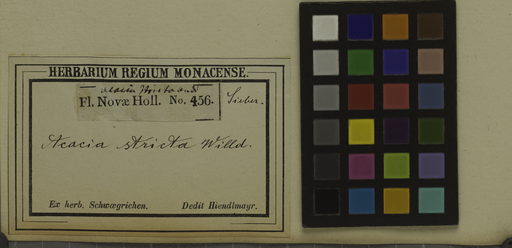 HERBARIUM REGIUM MONACENSE.
Acacia stricta
Fl. Novæ Holl. No. 456. Sieber.
Acacia stricta Willd.
Ex herb. Schwægrichen. Dedit Hiendlmayr.